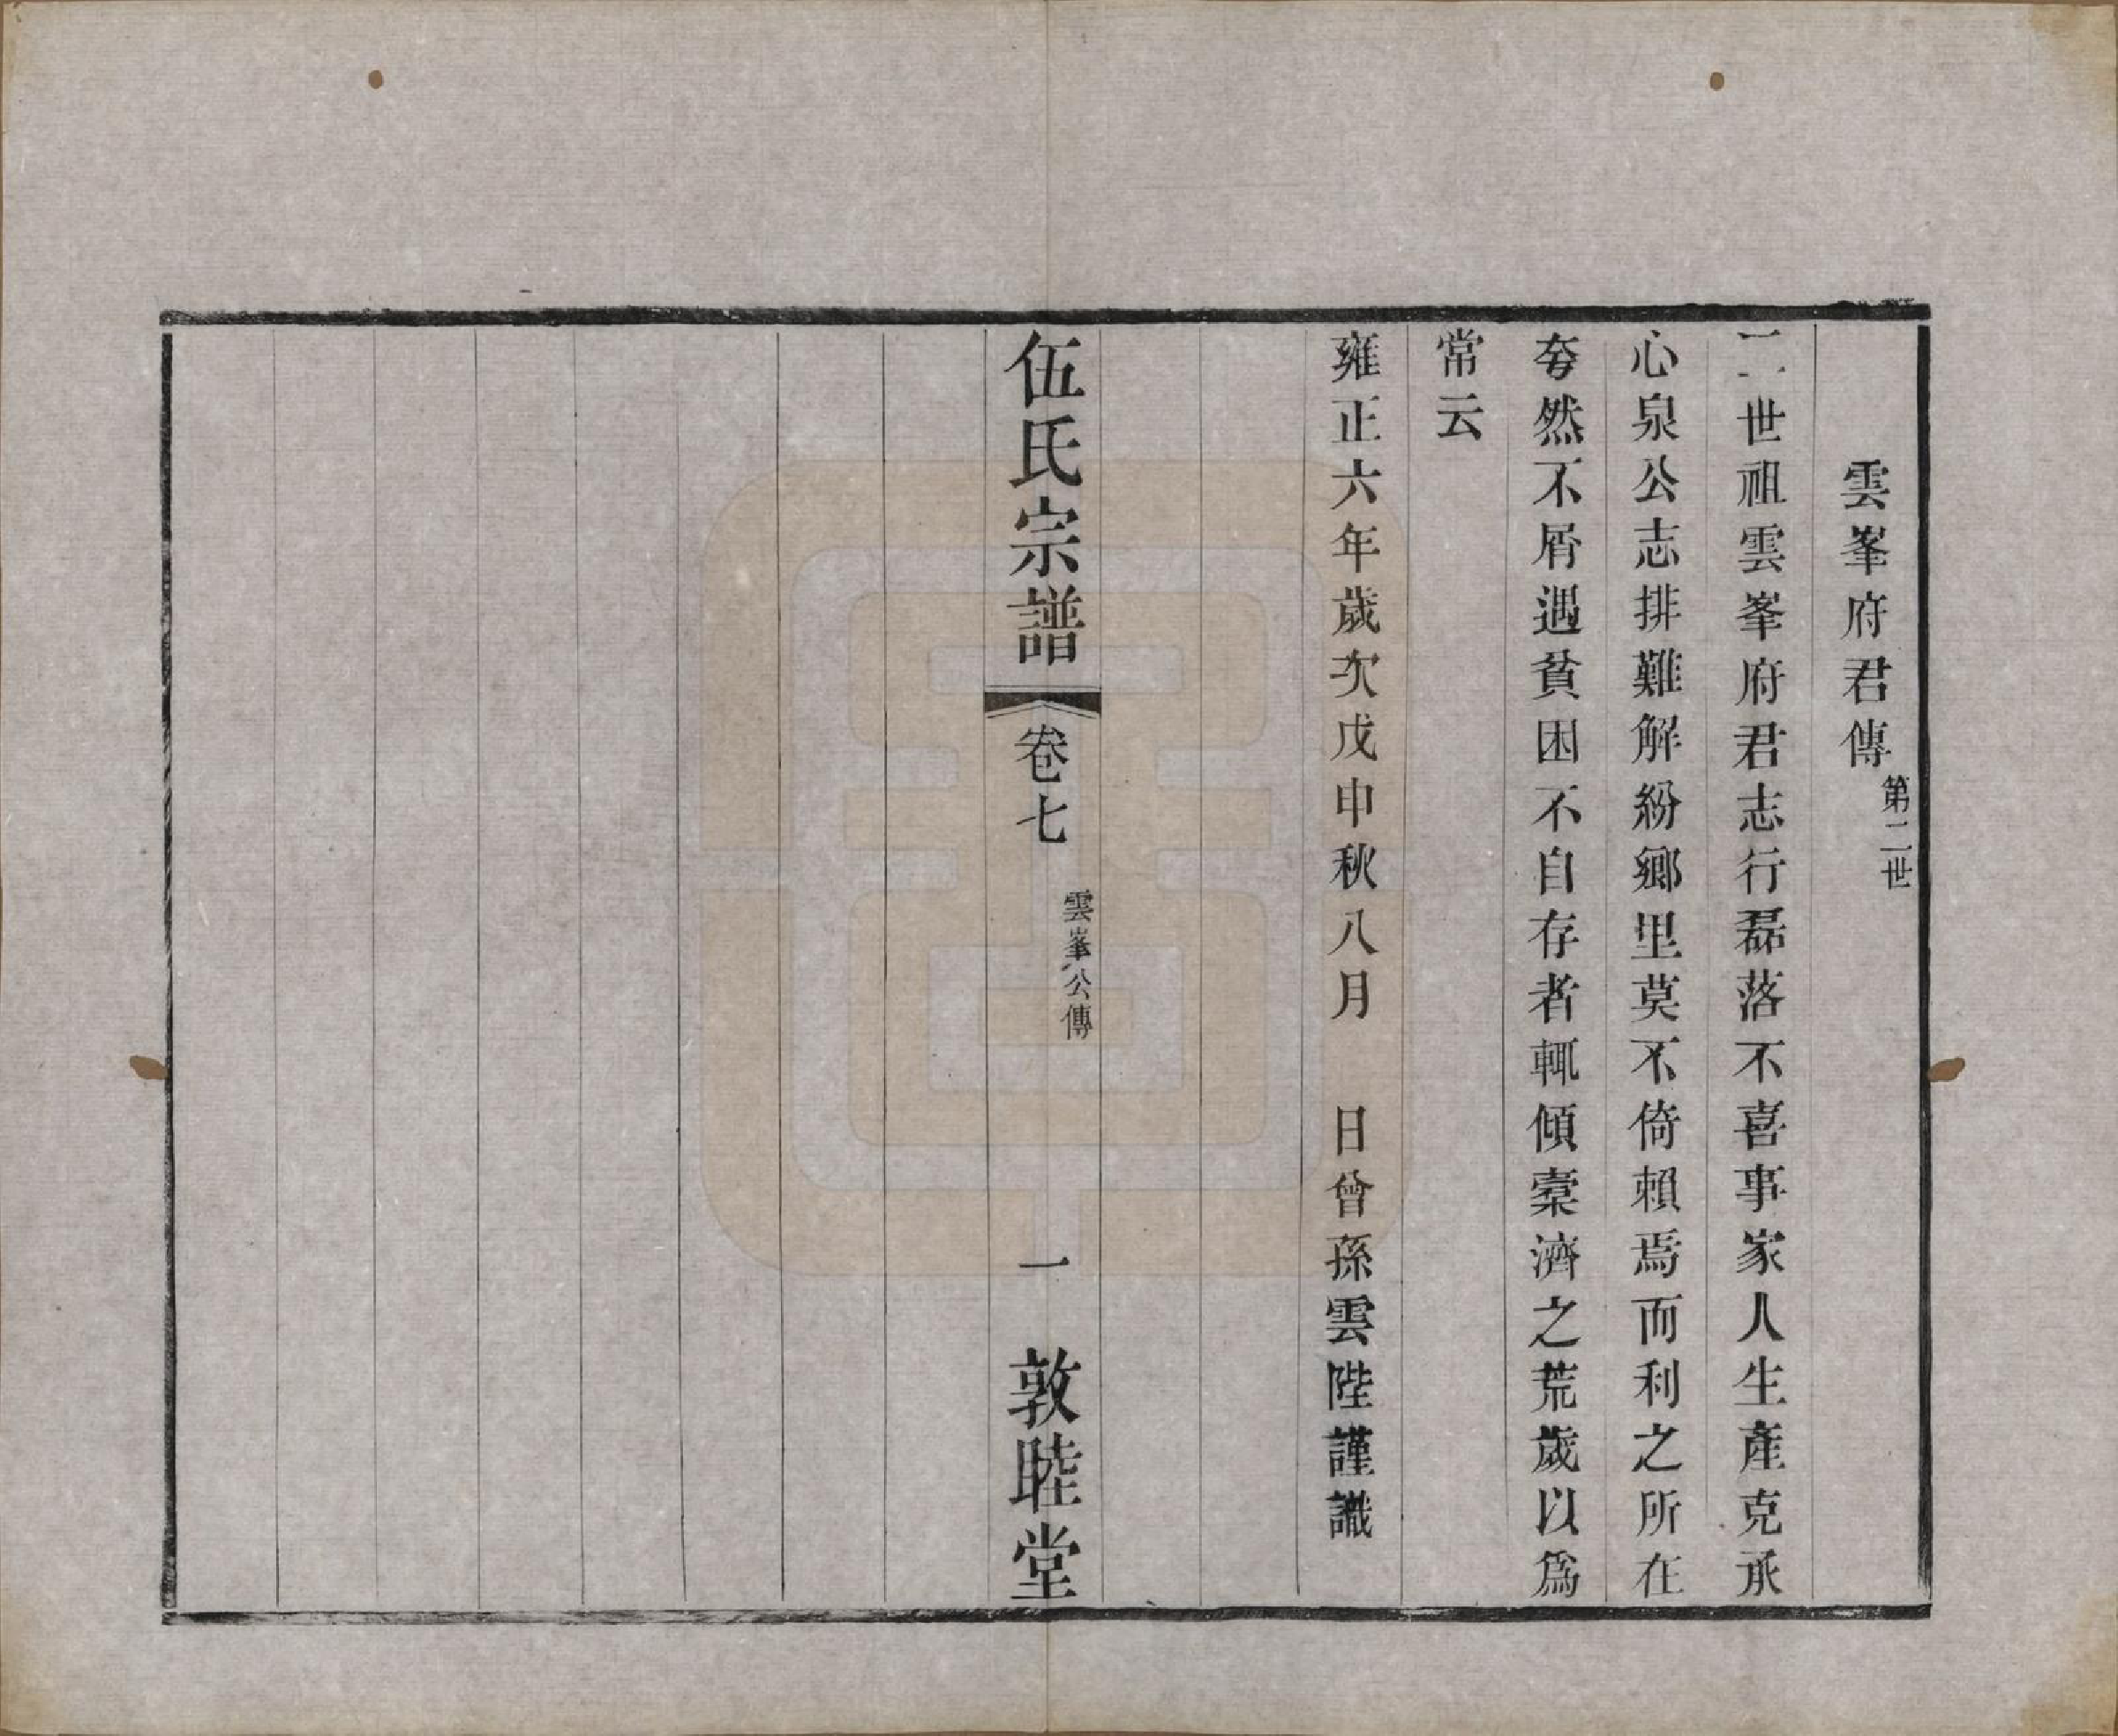 雲峯府君傳 第二世
二世祖雲峯府君志行磊落不喜事家人生產克承
心泉公志排難解紛鄉里莫不倚賴焉而利之所在
夸然不屑遇貧困不自存者輒傾橐濟之荒歲以爲
常云
雍正六年歲次戊申秋八月 日曾孫雲陛謹識
伍氏宗譜 卷七 雲峯公傳 一 敦睦堂